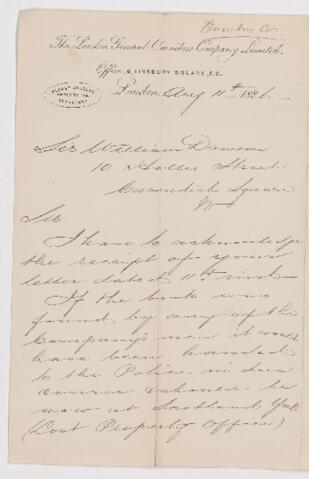 Omnibus Co.
The London General Omnibus Company Limited.
Office, 6, FINSBURY SQUARE, E.C.
PLEASE ADDRESS
SECRETARY
London, Aug 11th 1886.
Sir William
10 Holles Street
Cavendish Square
W
Sir
I have to acknowledge
the receipt of your
letter dated 11th inst
If the book was
found by any of the
Company's men it would
have been handed
to the Police in due
course & should be
now at Scotland Yard
(Lost Property Office)